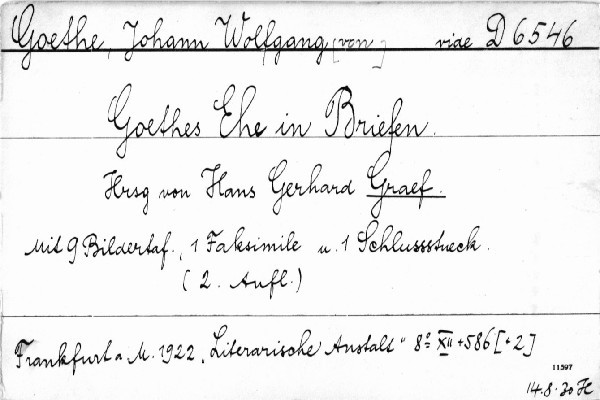 Goethe, Johann Wolfgang [von] vide D 6546
Goethes Ehe in Briefen.
Hrsg von Hans Gerhard Graef.
Mit 9 Bildertaf., 1 Faksimile u. 1 Schlussstueck.
(2. Aufl.)
Frankfurt a M. 1922 „Literarische Anstalt" 8° XII + 586 [+2]
11597
14.8.30